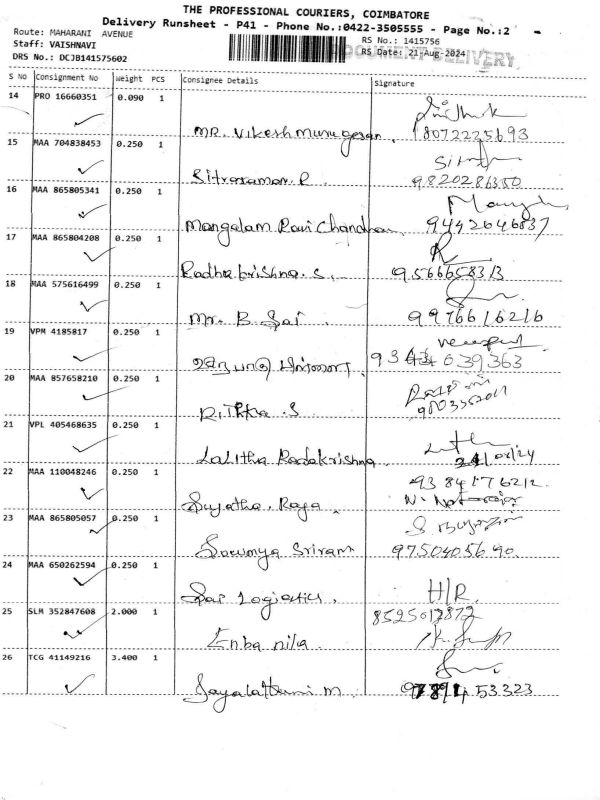 THE PROFESSIONAL COURIERS, COIMBATORE
Delivery Runsheet - P41 - Phone No.:0422-3505555 - Page No.:2
Route: MAHARANI AVENUE
RS No.: 1415756
Staff: VAISHNAVI
RS Date: 21-Aug-2024
DOCUMENT DELIVERY
DRS No.: DCJB141575602
S NO Consignment No Weight PCS Consignee Details Signature
14 PRO 16660351 0.090 1
MR. Vikesh Murugesan. 8072225693
15 MAA 704838453 0.250 1
Sitraraman. R 9820286350
16 MAA 865805341 0.250 1
Mangalam Ravi Chandran. 9442646837
17 MAA 865804208 0.250 1
Radhakrishna. S. 9566658313
18 MAA 575616499 0.250 1
Mr. B Sai 9976616216
19 VPM 4185817 0.250 1
039363
20 MAA 857658210 0.250 1
21 VPL 405468635 0.250 1
Lalitha Radakrishna 21/08/24
22 MAA 110048246 0.250 1
9384176212
Sujatha. Raja
23 MAA 865805057 0.250 1
Sowmya Sriram 9750405690
24 MAA 650262594 0.250 1
Logistics. H/R.
25 SLM 352847608 2.000 1
8525012872
Enba nila
26 TCG 41149216 3.400 1
M. 53323